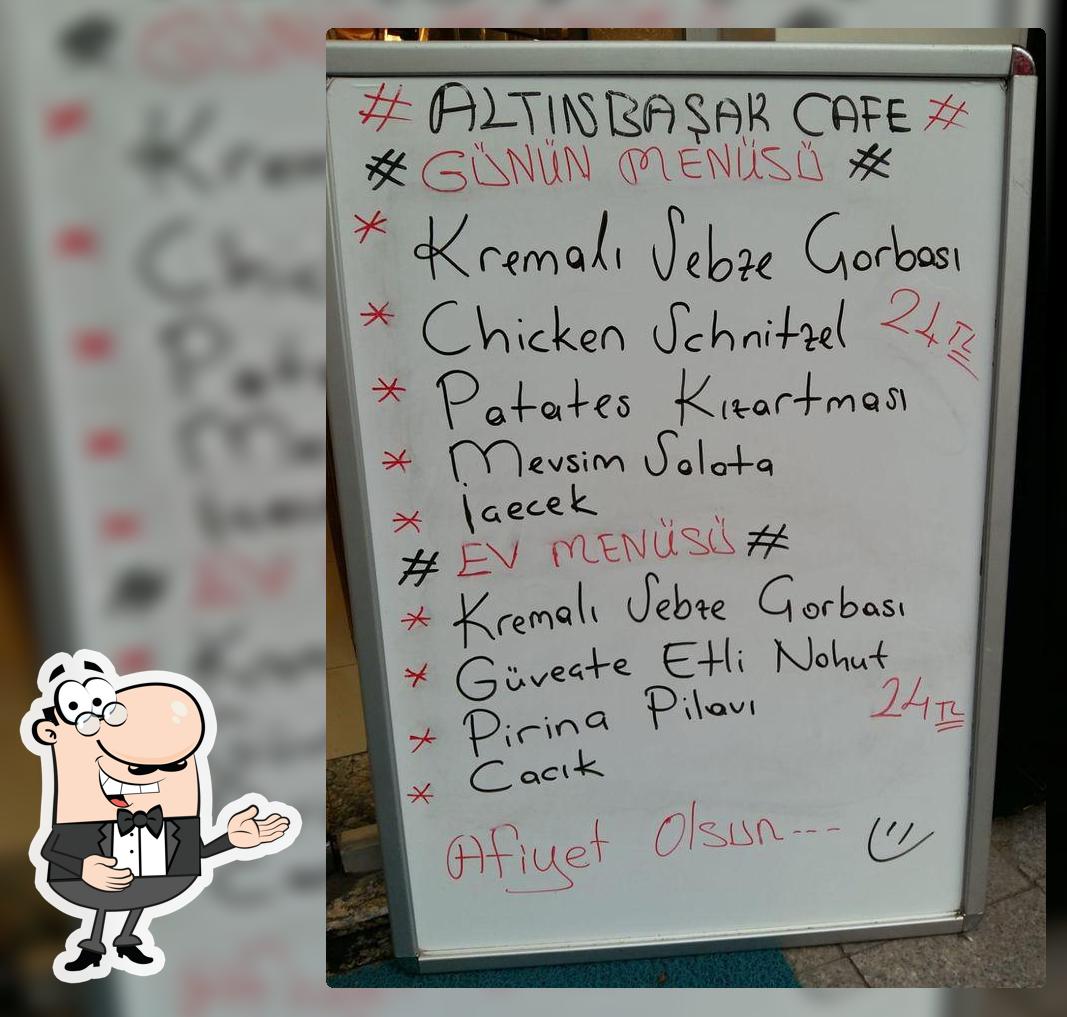 # ALTINBAŞAK CAFE #
# GÜNÜN MENÜSÜ #
* Kremalı Sebze Çorbası
* Chicken Schnitzel 24 TL
* Patates Kızartması
* Mevsim Salata
* İçecek
# EV MENÜSÜ #
* Kremalı Sebze Çorbası
* Güveçte Etli Nohut
* Pirinç Pilavı 24 TL
* Cacık
Afiyet Olsun---